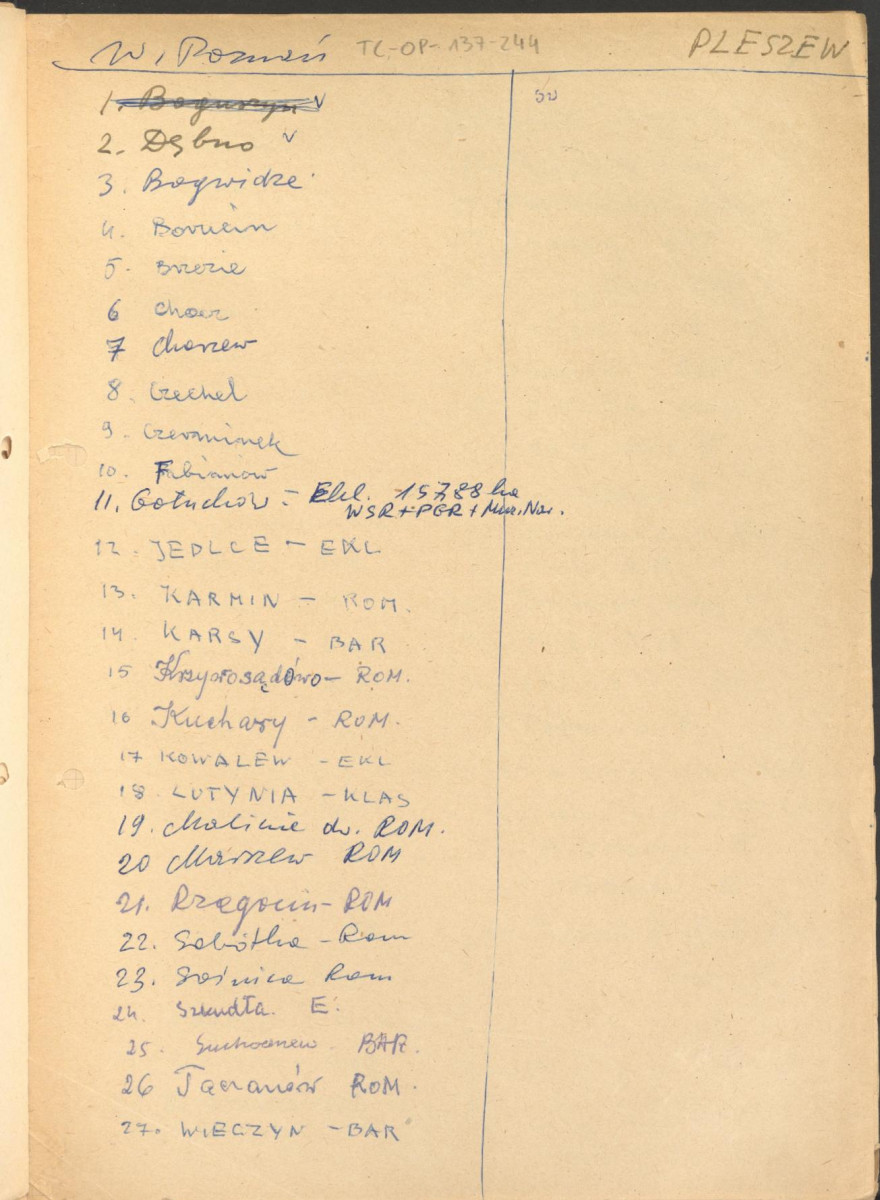 W. Poznań TC-OP-137-244 PLESZEW
1. Boguszyn v
2. Dębno v
3. Bogwidze
4. Borucin
5. Brzezie
6 Chocz
7 Chorzew
8. Czechel
9. Czerminek
10. Fabianów
11. Gołuchów - Ekl. 157,88 ha
WSR+PGR+Muz. Nar.
12. JEDLCE - EKL
13. KARMIN - ROM.
14. KARSY - BAR
15 Krzywosądowo - ROM.
16 Kuchary - ROM.
17 KOWALEW - EKL
18. LUTYNIA - KLAS
19. Malinie dw. ROM.
20 Marszew ROM
21. Rzegocin - ROM
22. Sobótka - Rom
23. Sośnica Rom
24. Szkudła. E.
25. Suchorzew. BAR.
26 Taczanów ROM.
27. WIECZYN - BAR